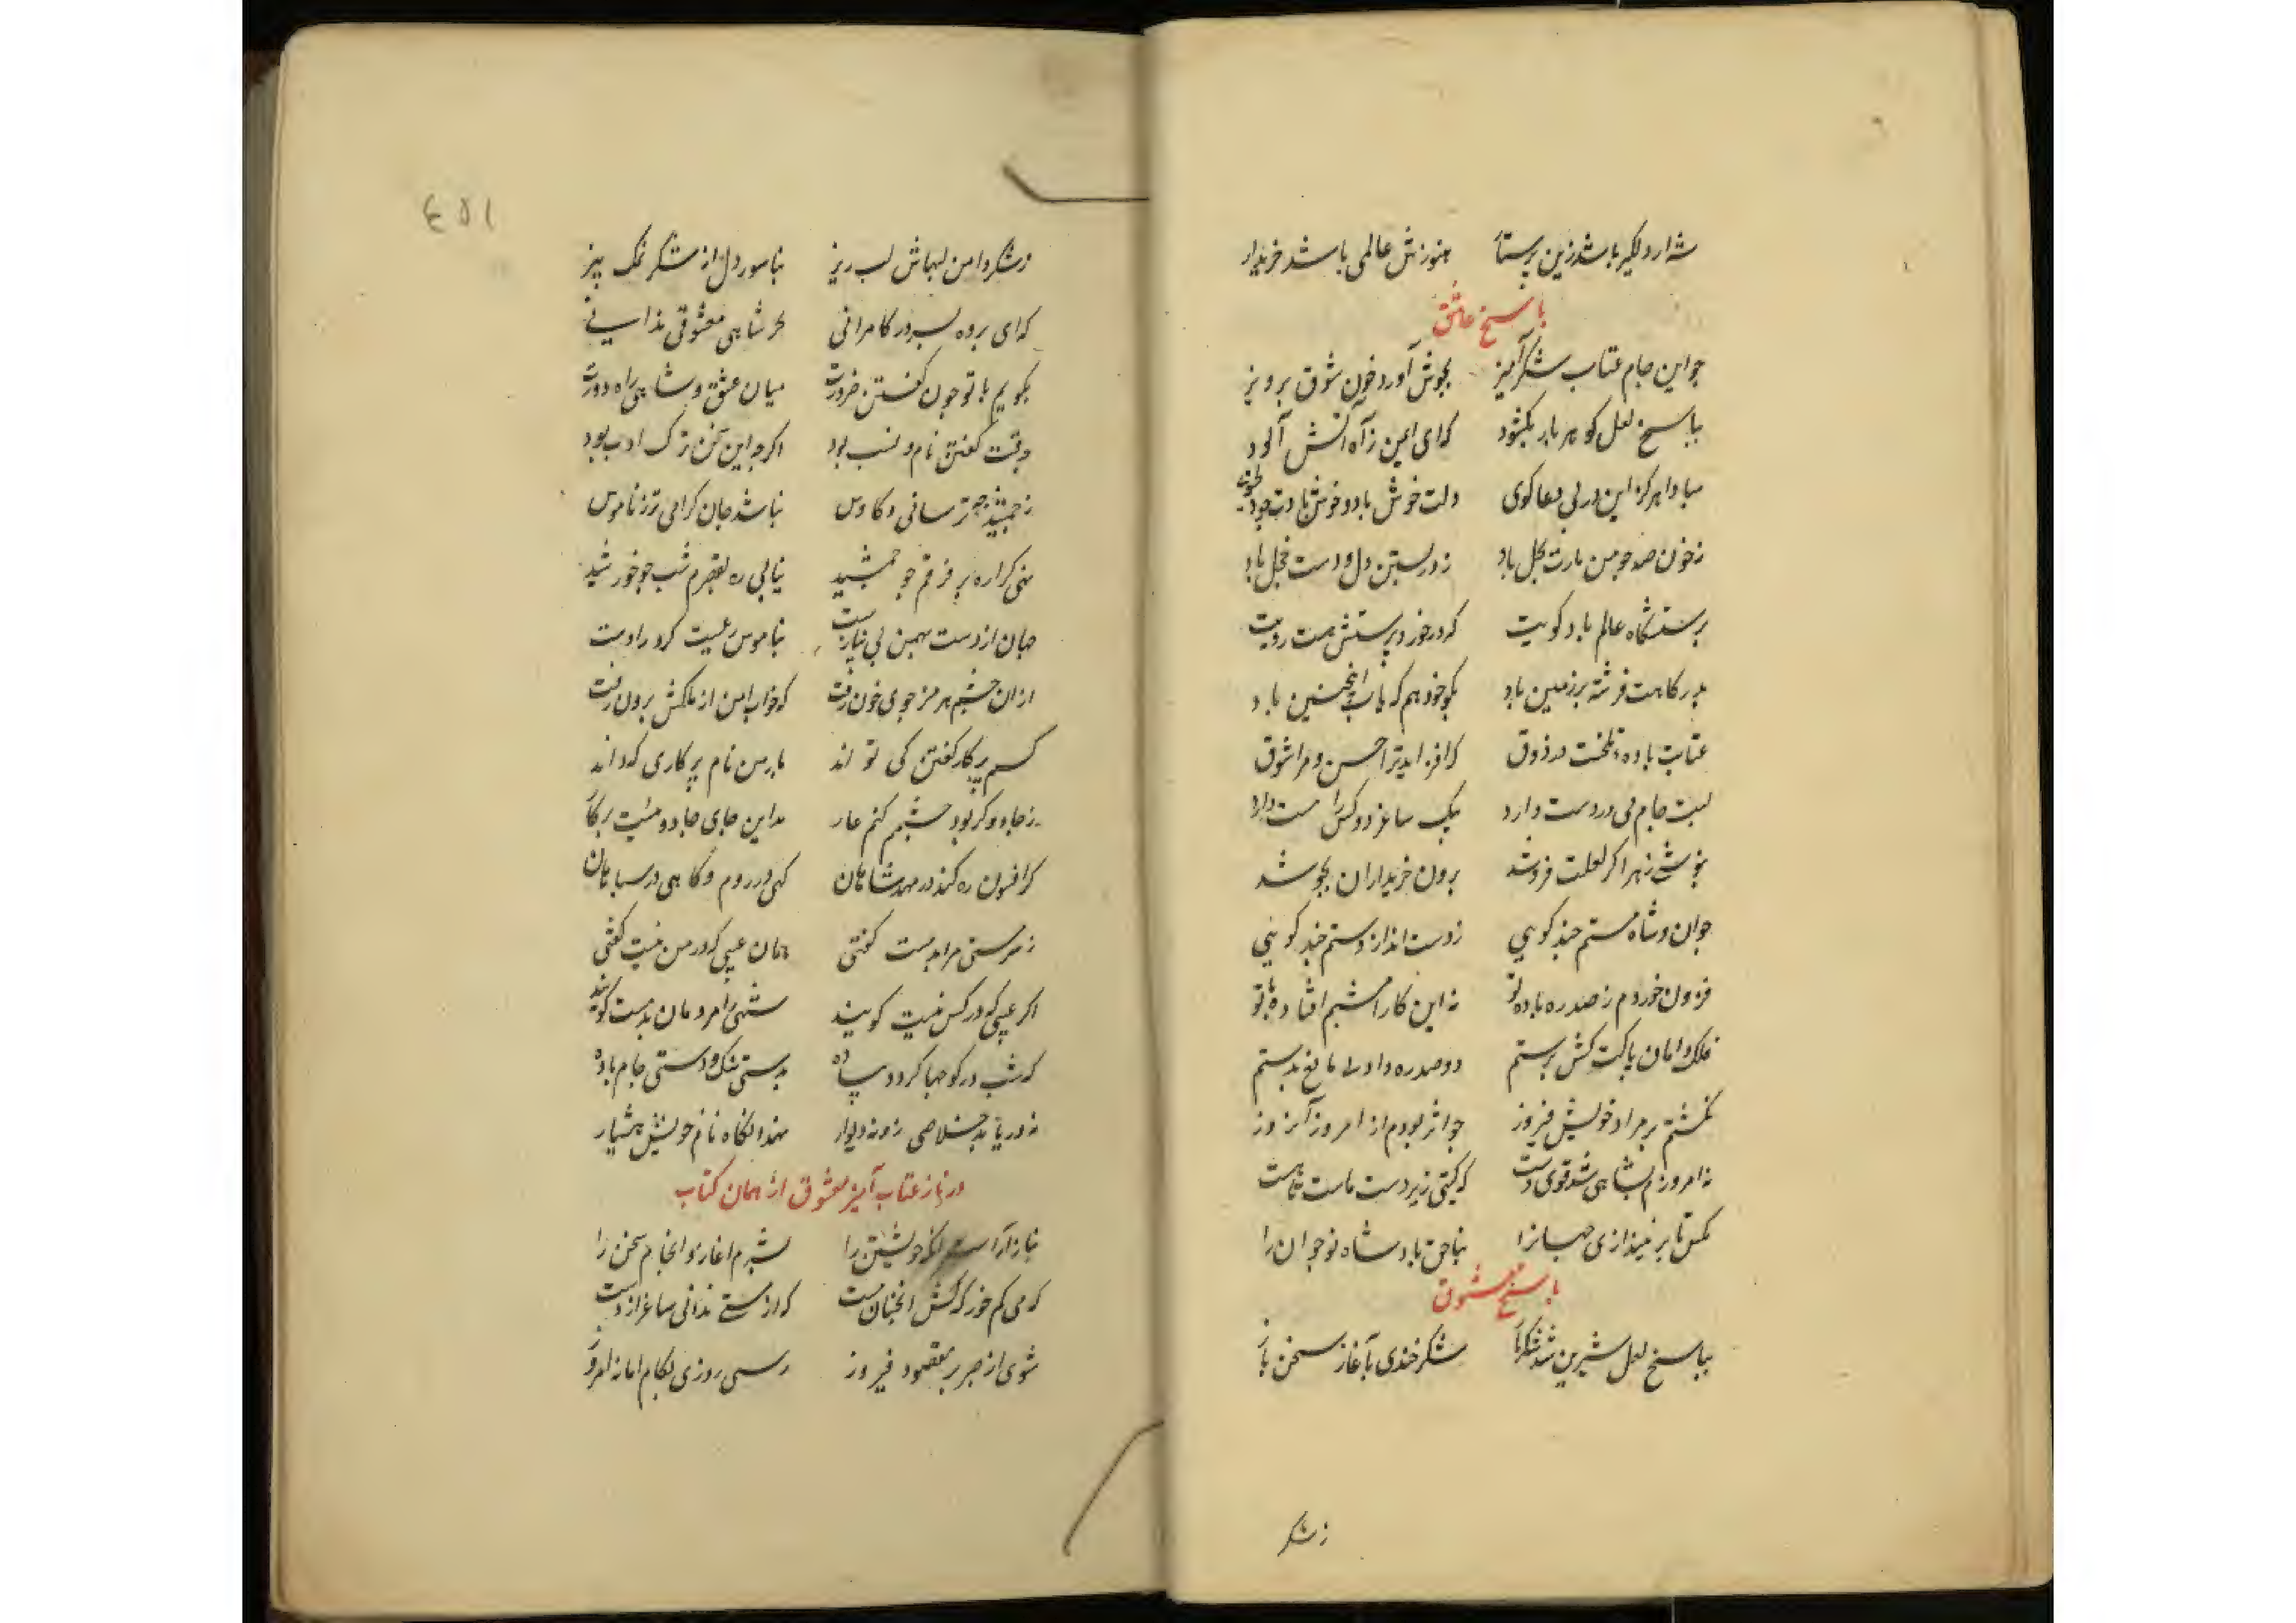 شه ار دلگیر باشد زین پرستار هنوزش عالمی باشد خریدار
پاسخ عاشق
چو این جام عتاب شکرآمیز بجوش آورد خون شوق پرویز
بپاسخ لعل گوهر بار بگشود که ای ایمن ز آه آتش آلود
مبادا هرگز این در بی دعا گوی دلت خوش باد و خوش بادت
ز خون صد چو من بارت بگل باد ز در بستن دل و دست خجل باد
پرستشگاه عالم باد کویت که در خورد پرستش هست رویت
بدرگاهت فرشته بر زمین باد بگو خود هم که باب این چنین باد
عتابت باده تلخست در ذوق که افزاید ترا حسن و مرا شوق
لبت جام می در دست دارد بیک ساغر دو کس را مست دارد
بنوشی زهر اگر لعلت فروشد برون خریداران بجوشد
جوان و شاه مستم چند گویی ز دست انداز دستم چند گویی
فزون خوردم ز صد ره باده تو نه این کار امشبم افتاده با تو
فلک دامان پاکت کش پرستم دو صد ره داد بی مانع بدستم
نگشتم بر مراد خویش فیروز چو اثر بودم از امروز آن روز
نه امروزم بشاهی شد قوی دست که گیتی زیر دست ماست تا هست
مکش تا بر نیندازی جهانرا بناحق پادشاه نوجوان را
پاسخ معشوق
بپاسخ لعل شیرین شد شکربار شکرخندی بآغاز سخن باز
ز شکر
١٥٤
ز شکر دامن لبهاش لب ریز بناسور دل از شکر نمک بیز
که ای برده بسر در کامرانی بجز شاهی معشوقی ندانی
بگویم با تو چون گفتن ضرورت میان عشق و شاهی راه دورست
بوقت گفتن نام و نسب بود اگرچه این سخن ترک ادب بود
ز جمشید چه ترسانی و کاوس نباشد جان گرامی تر ز ناموس
نهی گر اره بر فرقم چو جمشید نیابی ره بقصرم شب چو خورشید
جهان از دست بهمن بی نیازست بناموس رعیت کرد را دست
ازان چشم هرمز جوی خون رفت که خواب امن از ملکش برون رفت
کسم پرکار گفتن کی تواند مادر من نام پرکاری که داند
ز جادو گر بود چشمم کنم عار مداین جای جادو نیست پرکار
گر افسون ره کند در مهد شاهان گهی در روم و گاهی در سپاهان
ز سرمستی مرا بدمست گفتی همان عیبی که در من نیست گفتی
اگر عیبی که در کس نیست گویند شهی را مردمان بدمست گویند
که شب در کوچها گردد پیاده بدستی سنگ و دستی جام باده
نه در یابد خلاصی زو نه دیوار نهد آنگاه نام خویش هشیار
در ناز عتاب آمیز معشوق از همان کتاب
بناز آراست خویشتن را بشرم آغاز و انجام سخن را
که می کم خور که کس آنچنان مست که از مستی ندانی ساغر از دست
شوی از صبر بر مقصود فیروز رسی روزی بکام اما نه امروز